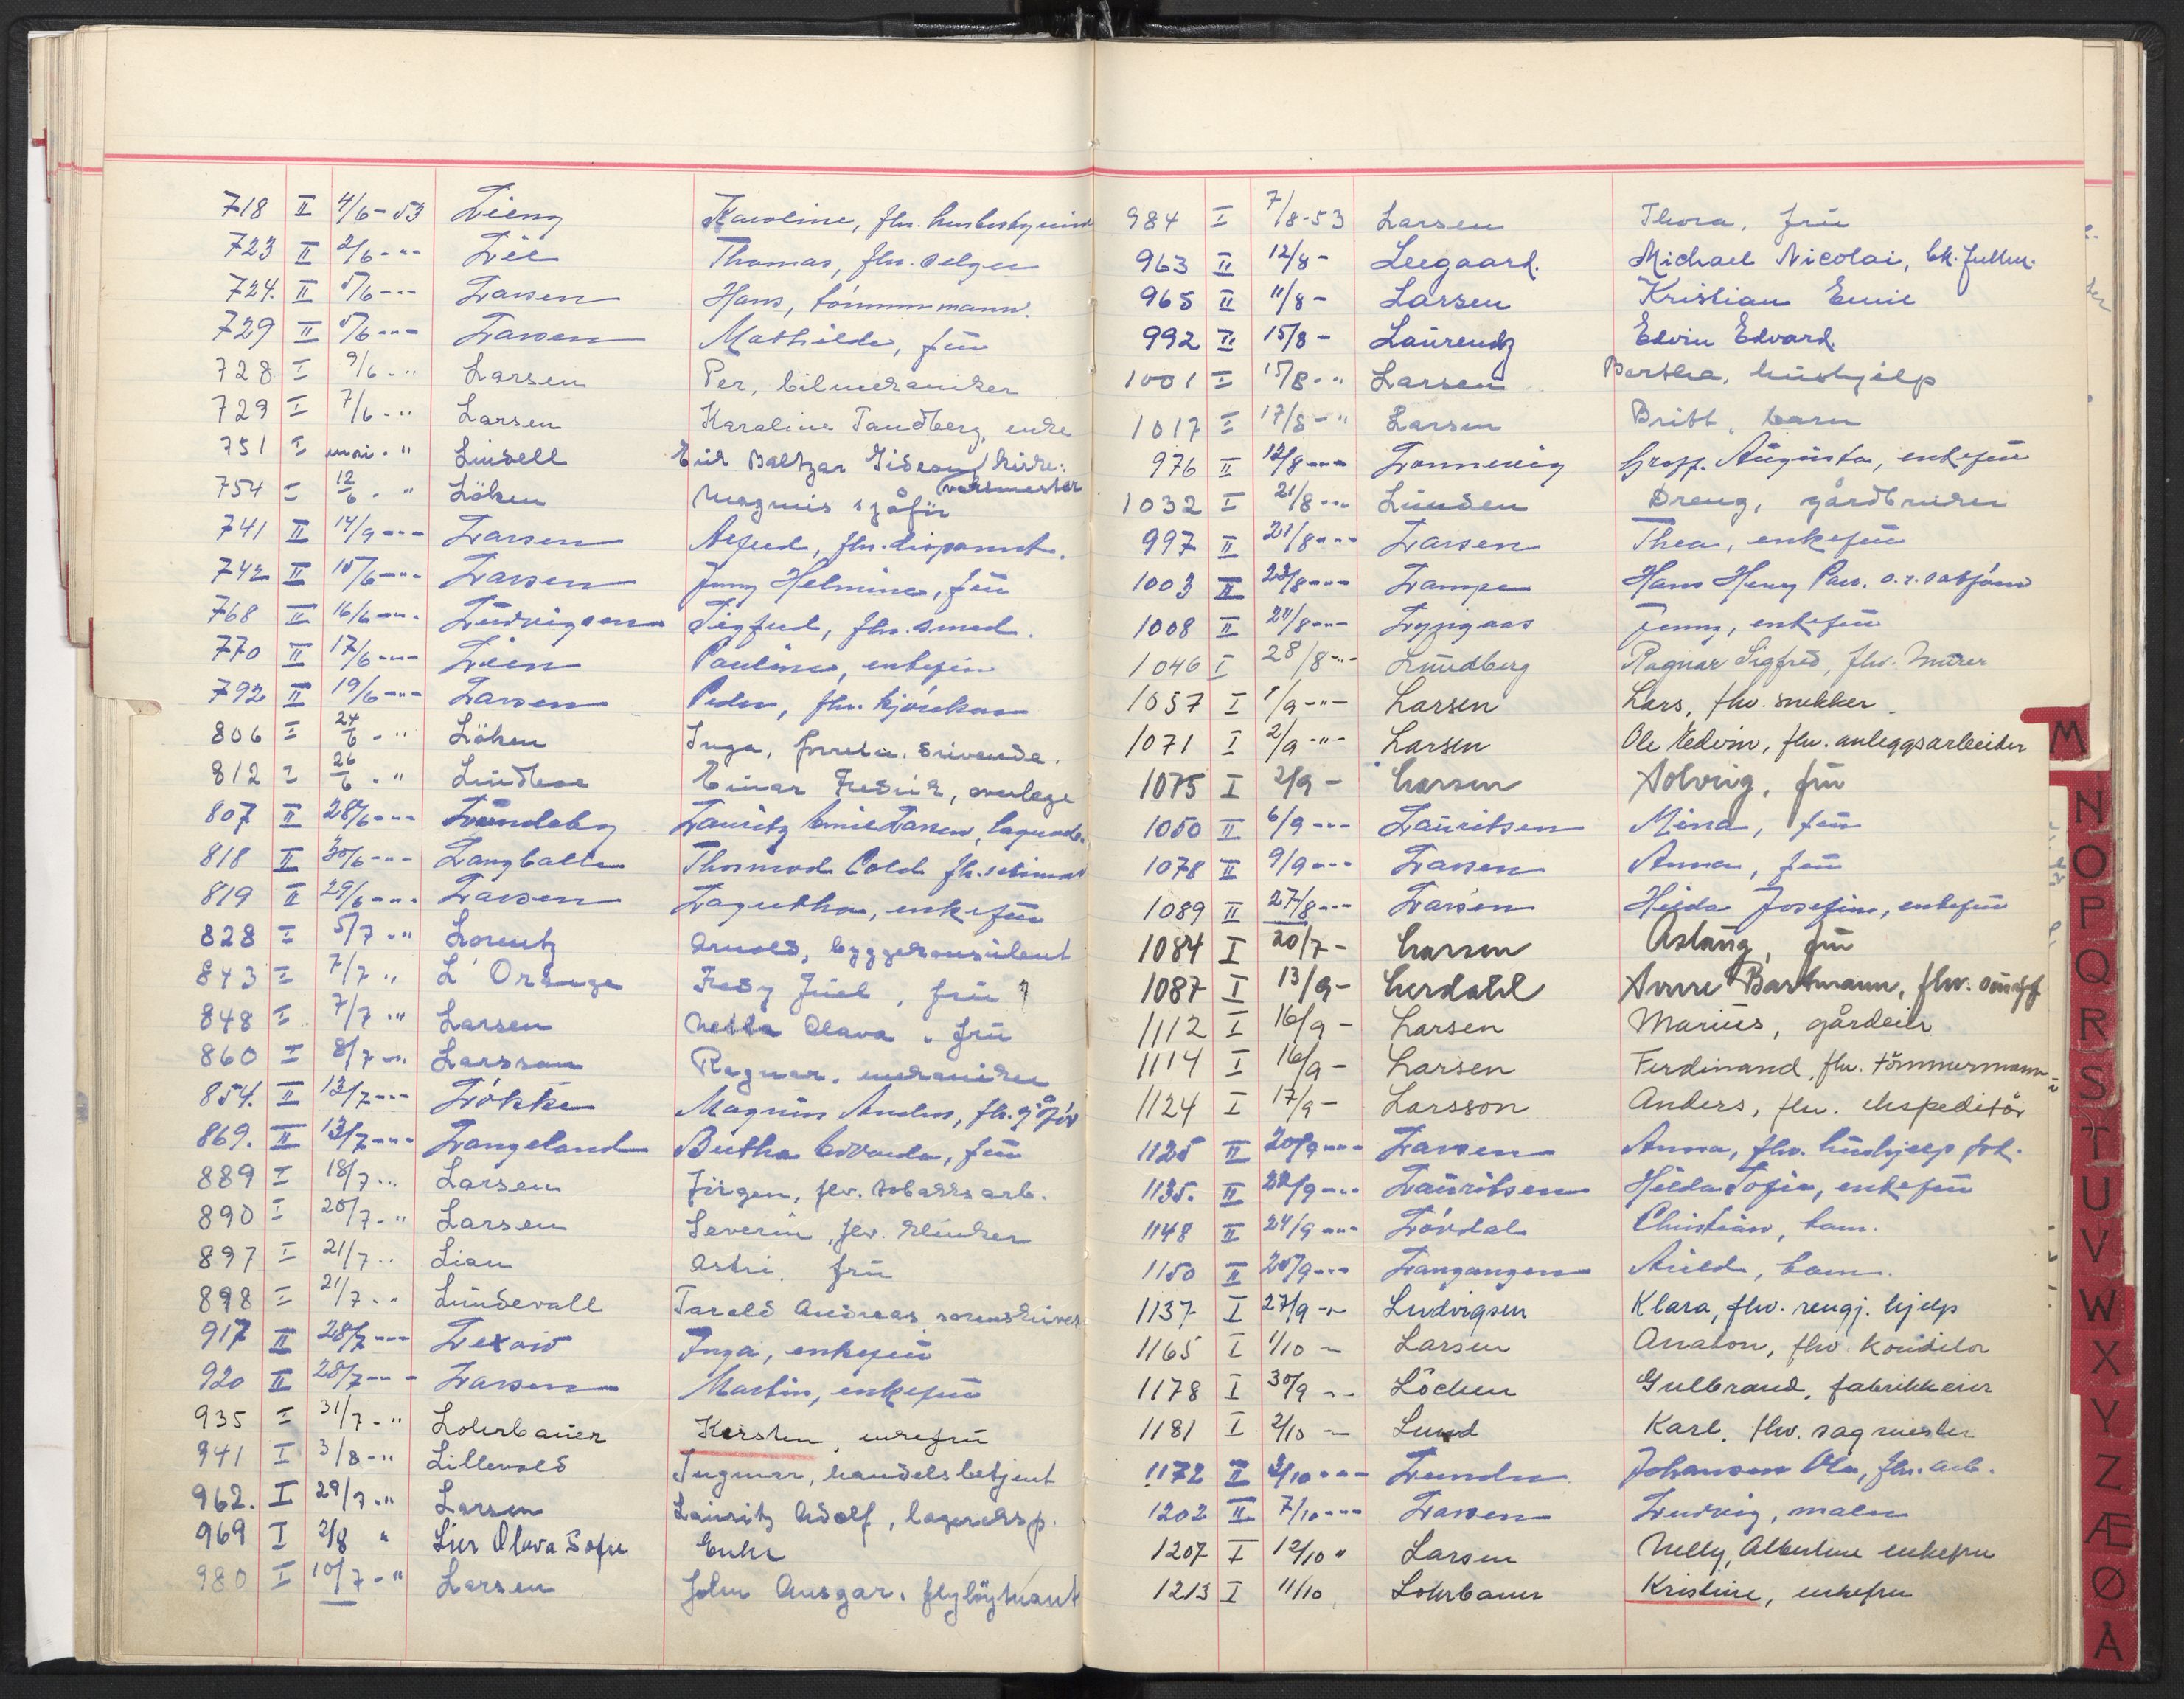 718 II 4/6-53 Lieng Karoline, fhv.
723 II 2/6-"- Lie Thomas, fhv. selger
724. II 5/6-"- Larsen Hans, tömmermann.
729 II 5/6-"- Larsen Mathilde, frü
728 I 9/6-" Larsen Per, bilmekaniker
729 I 7/6-" Larsen Karaline Tandberg, enke
751 I mai-" Lindell Erik Baltzar Gideon, kirke-
vaktmester
754 I 12/6-" Löken Magnus sjåfür
741 II 14/9-"- Larsen Alfred, fhv. disponent.
742 II 15/6-"- Larsen Jenny Helmine, frü
768 II 16/6-"- Ludvigsen Sigfred, fhv. smed.
770 II 17/6-"- Lien Pauline, enkefrü
792 II 19/6-"- Larsen Peder, fhv. kjörekar
806 I 24/6-" Löken Inga,
812 I 26/6-" Lindboe Einar Fredrik, overlege
807 II 28/6-"- Lundeby Lauritz Emil Larsen, lagerarb.
818 II 30/6-"- Langballe Thormod Cold
819 II 29/6-"- Larsen Lagertha, enkefrü
828 I 5/7-" Lorentz Arnold, byggekonsulent
843 I 7/7" L'Orange Fredy Juel, frü
848 I 7/7" Larsen Netta Olava, frü
860 I 8/7-" Larsson Ragnar, mekaniker
854. II 13/7-"- Lökke Magnus Anders, fhv. sjåför
869. II 13/7-"- Langeland Bertha Edvarda, frü
889 I 18/7-" Larsen Jörgen, fhv. tobakksarb.
890 I 20/7-" Larsen Severin, fhv. klinker
897 I 21/7-" Lian Astri, frü
898 I 21/7-" Lindevall Tarald Andreas, sorenskriver
917 II 28/7-"- Lexow Inga, enkefrü
920 II 28/7-"- Larsen Martin, enkefrü
935 I 31/7-" Lohrbauer Kirsten, enkefrü
941 I 3/8-" Lillevold Ingmar, handelsbetjent
962. I 29/7-" Larsen Lauritz Adolf, lagereksp.
969 I 2/8 " Lier Olava Sofie Enke
980 I 10/7-" Larsen John Ansgar, flylöytnant
984 I 7/8-53 Larsen Thora, frü
963 II 12/8- Leegaard. Michael Nicolai,
965 II 11/8- Larsen Kristian Emil
992 II 15/8- Laurendz Edvin Edvard.
1001 I 15/8-" Larsen Bertha, hushjelp
1017 I 17/8-" Larsen Britt, barn
976 II 12/8-"- Lonnevig Augusta, enkefrü
1032 I 21/8-" Linden Dreng, gårdbruker
997 II 21/8-"- Larsen Thea, enkefrü
1003 II 23/8-"- Lampe Hans Henry
1008 II 24/8-"- Lyngaas Jenny, enkefrü
1046 I 28/8-"- Lundberg Ragnar Sigfred, fhv. Murer
1057 I 1/9-"- Larsen Lars, fhv. snekker.
1071 I 2/9-"- Larsen Ole Edvin, fhv. anleggsarbeider
1075 I 2/9- Larsen Solveig, frü
1050 II 6/9-"- Lauritsen Mina, frü
1078 II 9/9-"- Larsen Anna, frü
1089 II 27/8-"- Larsen Hilda Josefine, enkefrü
1084 I 20/7- Larsen Aslaug, frü
1087 I 13/9- Lerdahl
1112 I 16/9- Larsen Marius, gårdeier
1114 I 16/9- Larsen Ferdinand, fhv. tömmermann
1124 I 17/9- Larsson Anders, fhv. ekspeditör
1125 II 20/9-"- Larsen Anna, fhv. hushjelp
1135. II 22/9-"- Lauritsen Hilda Sofie, enkefrü
1148 II 24/9-"- Lövdal Christian, barn.
1150 II 25/9-"- Langangen barn.
1137 I 27/9-"- Ludvigsen Klara, fhv. rengj. hjelp
1165 I 1/10 - Larsen Anaton, fhv. Konditor
1178 I 30/9 -"- Löchen Gulbrand, fabrikkeier
1181 I 2/10 - Lund Karl, fhv. sagmester
1172 II 3/10-"- Lunder Johannes Ole, fhv. arb.
1202 II 7/10-"- Larsen Ludvig, maler
1207 I 12/10 " Larsen Nelly, Albertine enkefru
1213 I 11/10 Lohrbauer Kristine, enkefru
M
N
O
P
Q
R
S
T
U
V
W
X
Y
Z
Æ
Ø
A